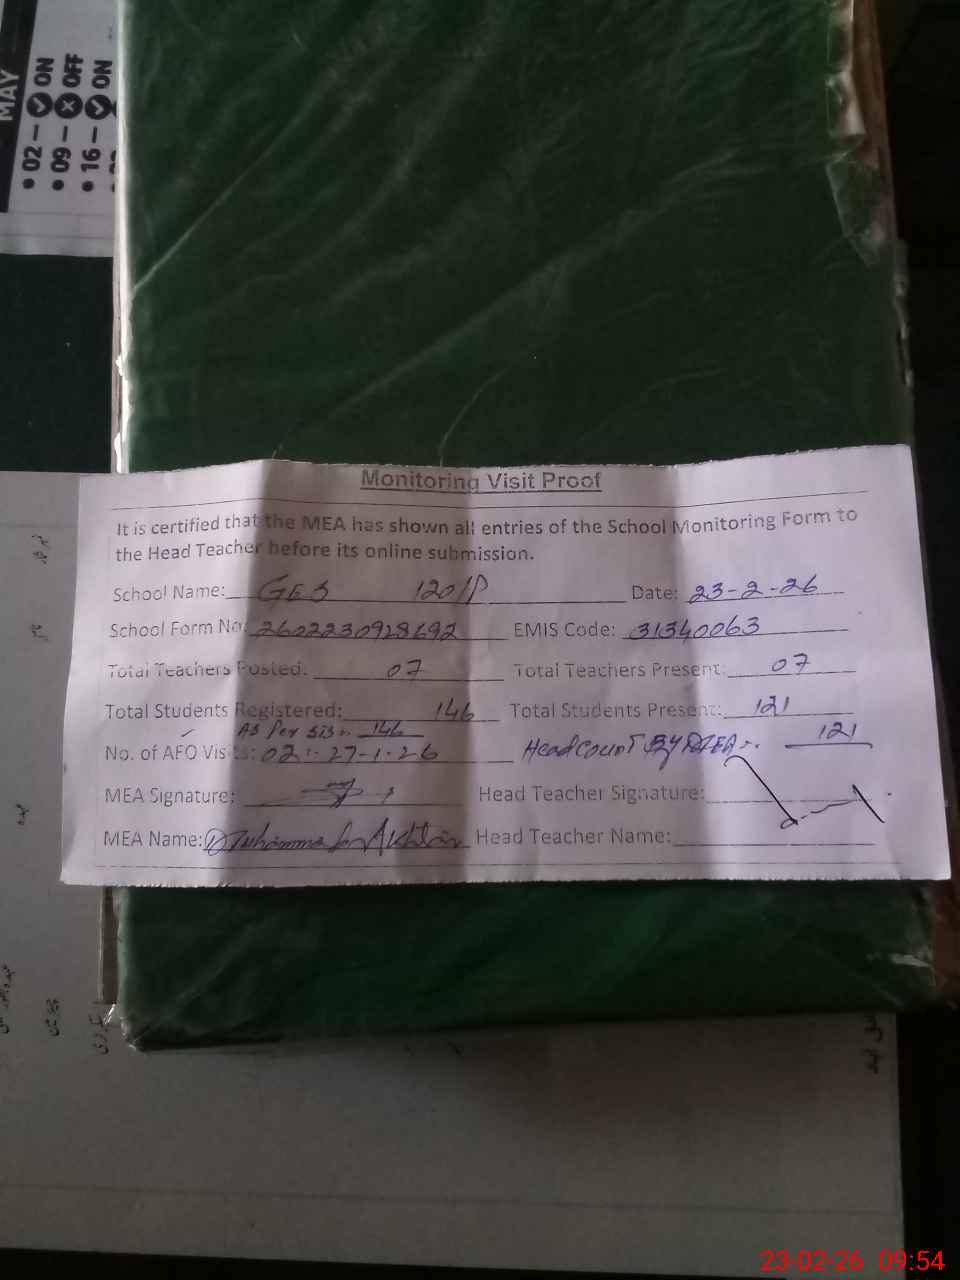 MAY
• 02 – ON
• 09 – OFF
• 16 – ON
Monitoring Visit Proof
It is certified that the MEA has shown all entries of the School Monitoring Form to
the Head Teacher before its online submission.
School Name: GES 120/P Date: 23-2-26
School Form No: 2602230928692 EMIS Code: 31340063
Total Teachers Posted: 07 Total Teachers Present: 07
Total Students Registered: 146 Total Students Present: 121
As Per SIS:. 146
No. of AFO Visits: 02:- 27-1-26 Headcount By MEA:. 121
MEA Signature: Head Teacher Signature:
MEA Name: Muhammad Akhtar Head Teacher Name:
23-02-26 09:54